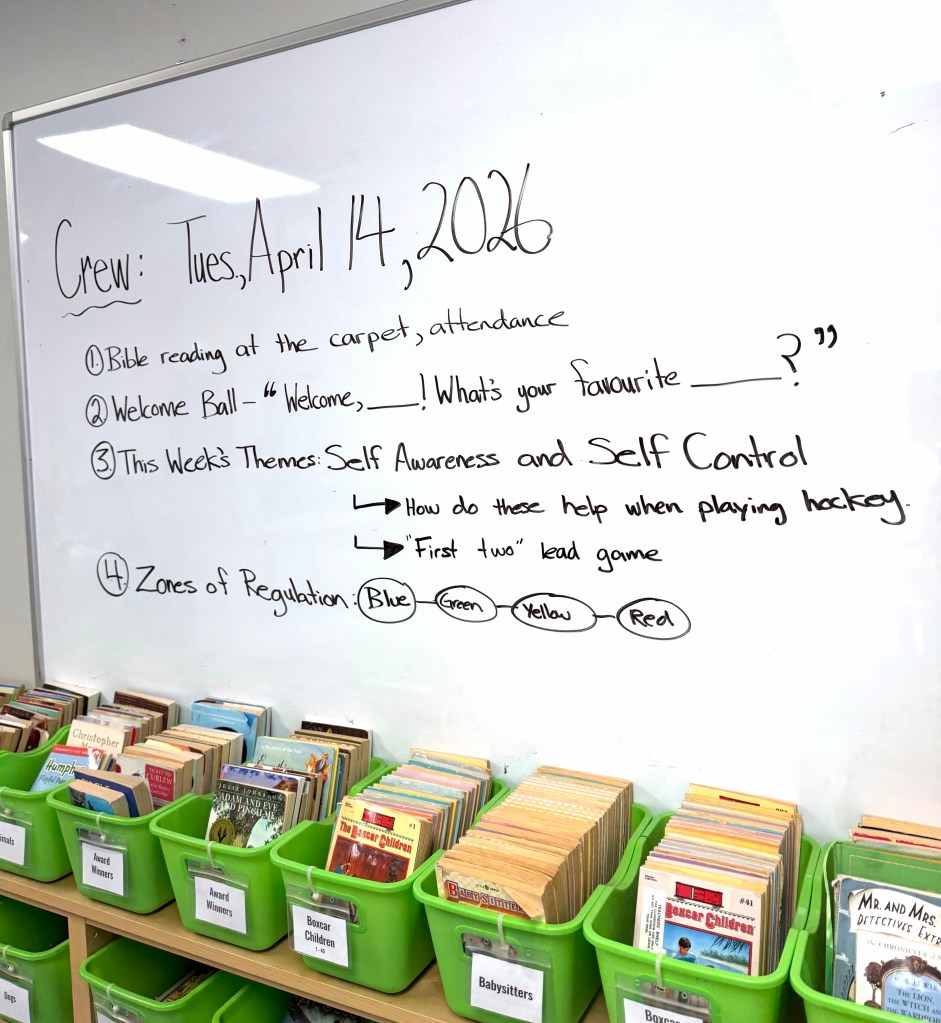 Crew: Tues., April 14, 2026
① Bible reading at the carpet, attendance
② Welcome Ball – "Welcome, ___! What's your favourite ______?"
③ This Week's Themes: Self Awareness and Self Control
How do these help when playing hockey.
"First two" lead game
④ Zones of Regulation: Blue Green Yellow Red
Christopher
Humph
Award Winners
Award Winners
ADAM AND EVE AND PINCH-ME
Boxcar Children
1-40
#1
The Boxcar Children
Babysitters
#41
Boxcar Children
MR. AND MRS.
DETECTIVES EXTR
THE CHRONICLES OF N
C. S. LEWIS
THE LION,
THE WITCH AND
THE WARDROB
Dogs